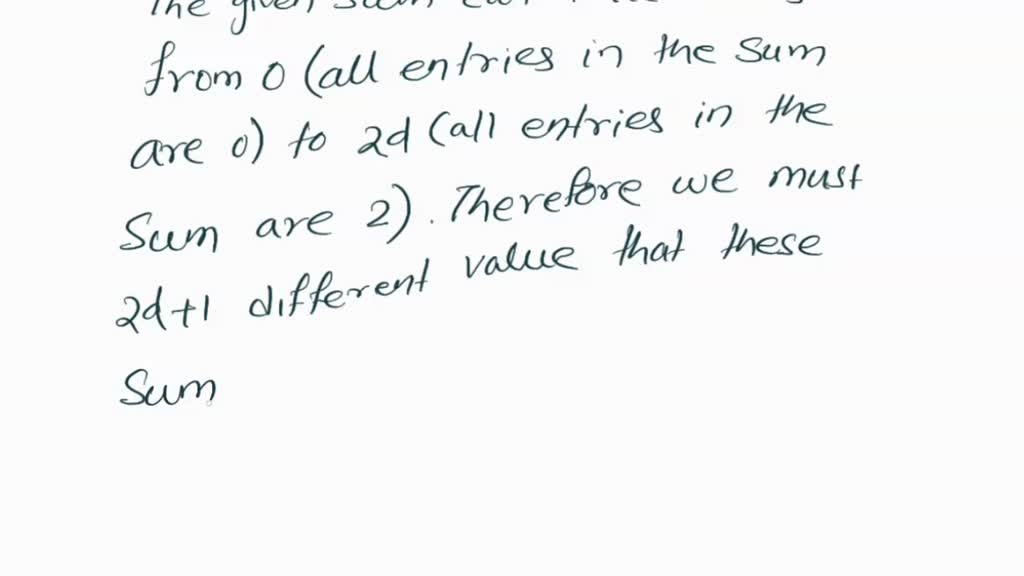 The given sum
from 0 (all entries in the sum
are 0) to 2d (all entries in the
Sum are 2). Therefore we must
2d+1 different value that these
Sum